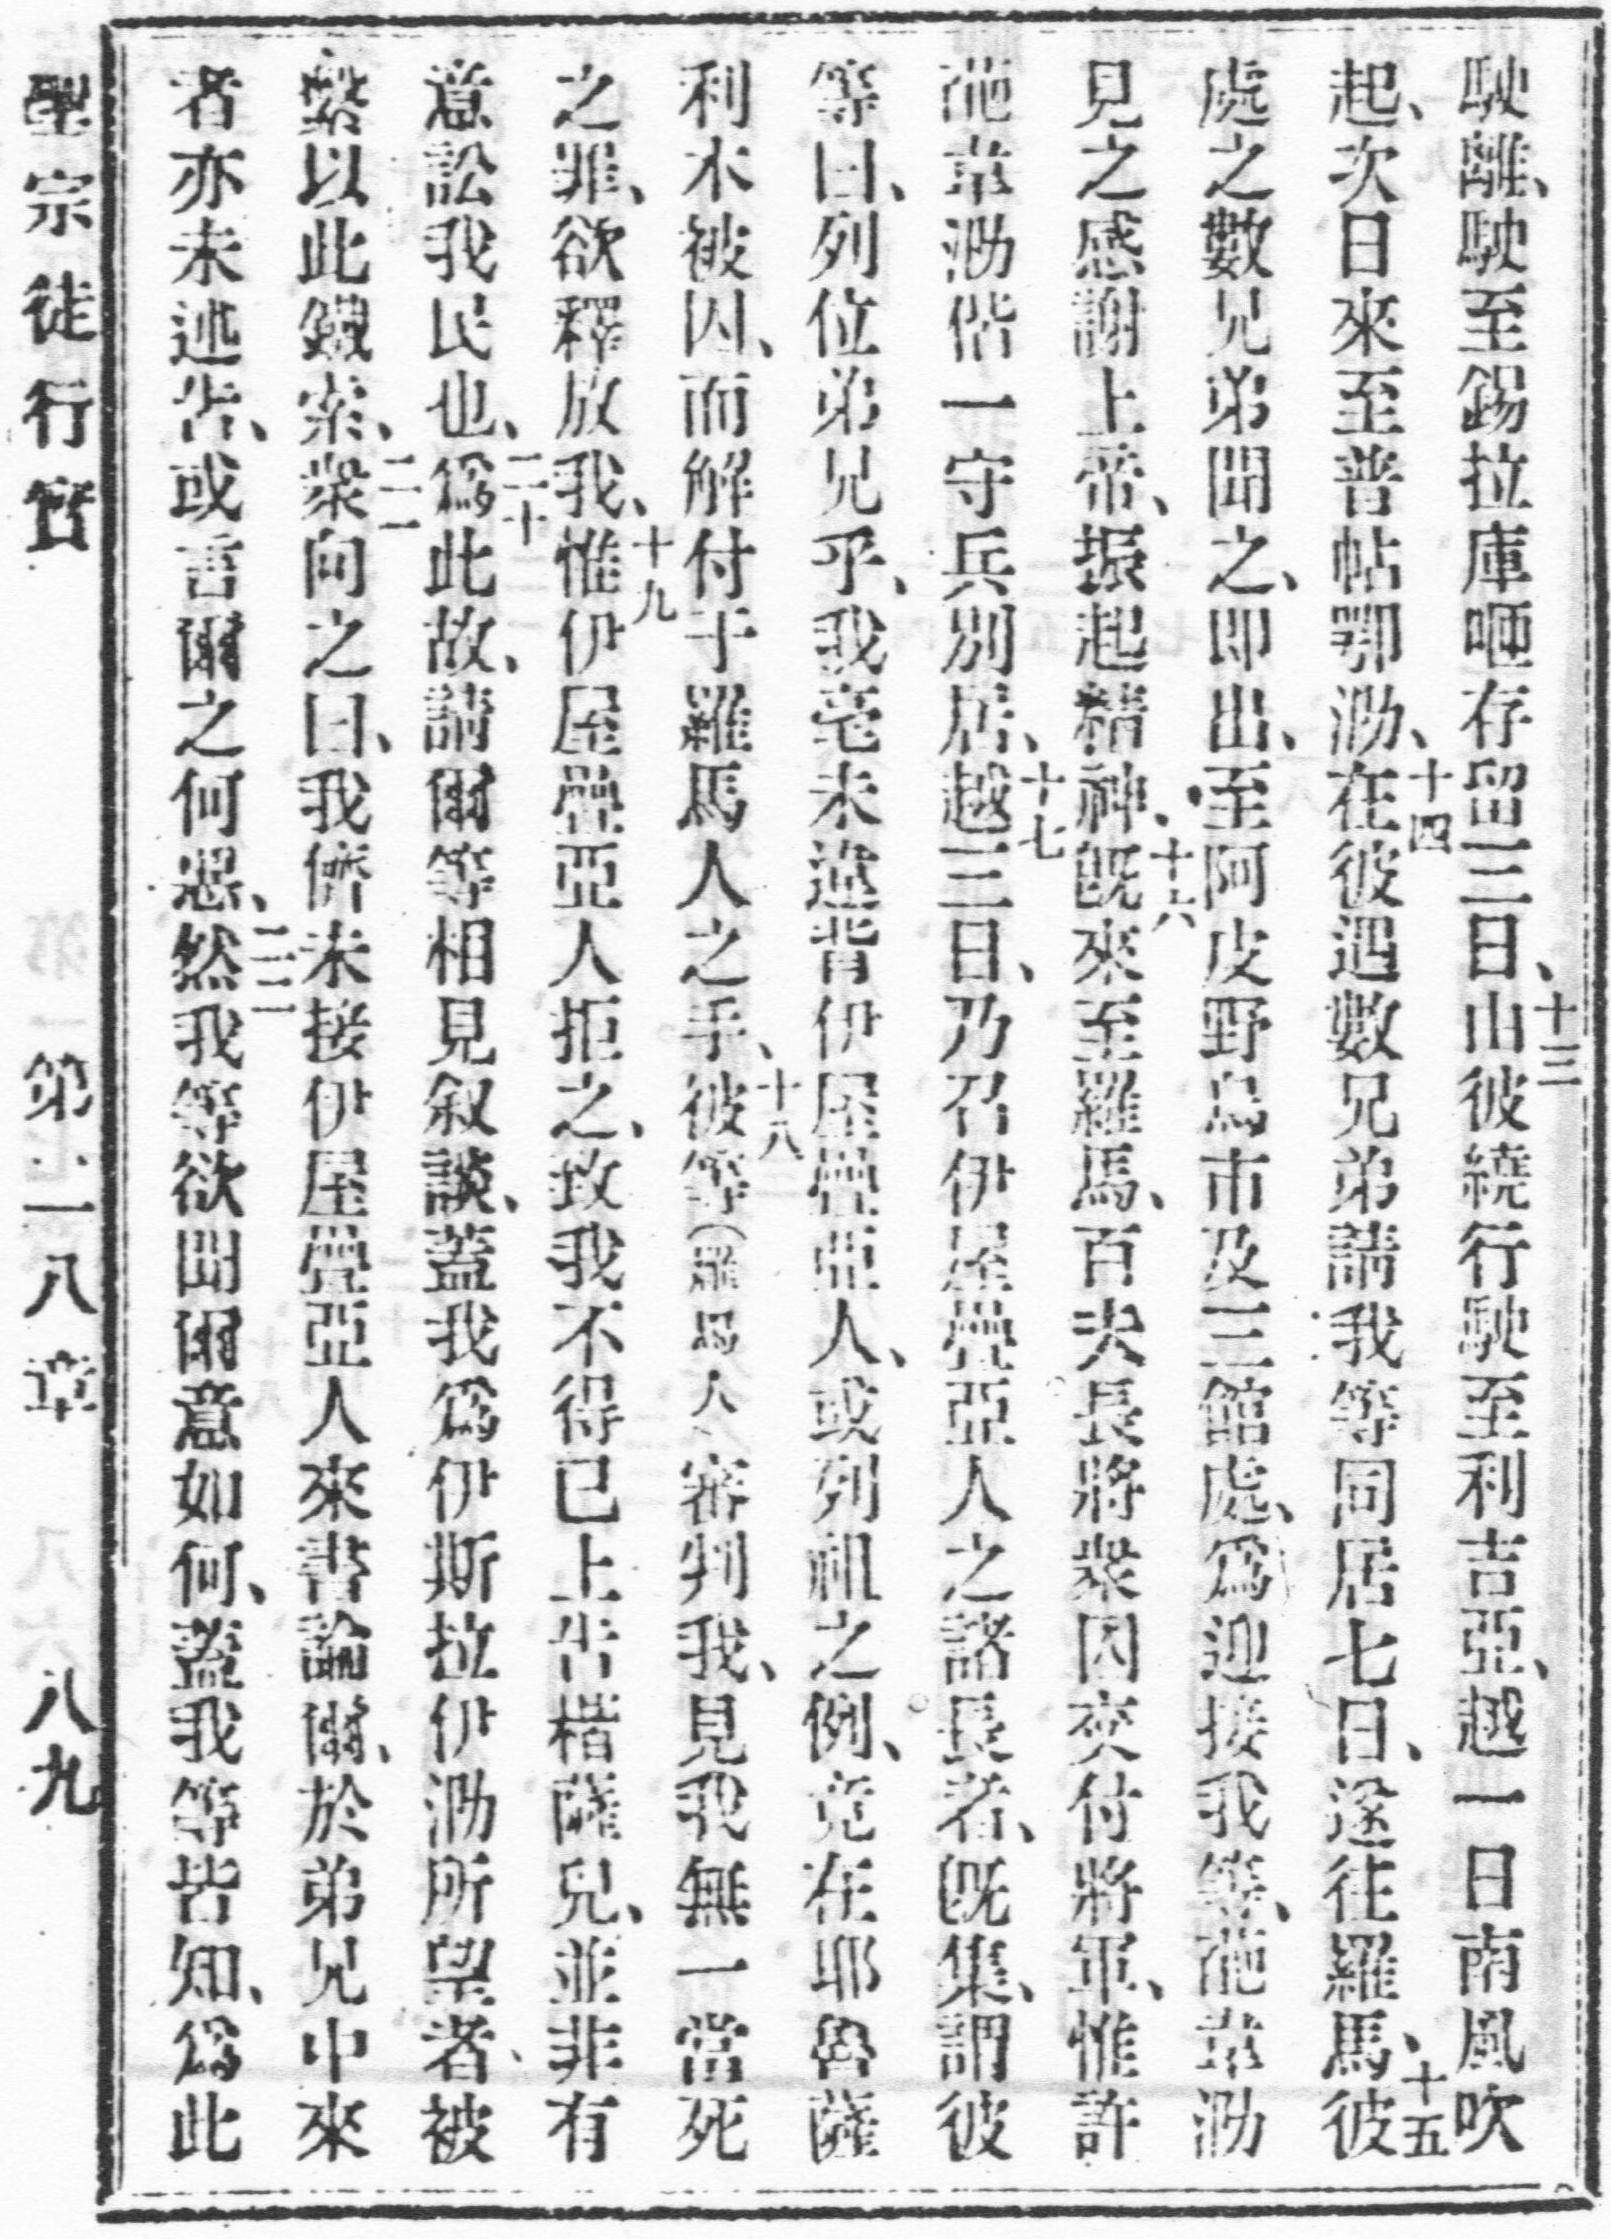 駛離、駛至錫拉庫咂存留三日、十三由彼繞行駛至利吉亞、越一日南風吹
起、次日來至普帖鄂泐、十四在彼遇數兄弟請我等同居七日、遂往羅馬、十五彼
處之數兄弟聞之、即出、至阿皮野烏市及三館處、爲迎接我等、葩韋泐
見之感謝上帝、振起精神、十六既來至羅馬、百夫長將衆囚交付將軍、惟許
葩韋泐偕一守兵別居、十七越三日、乃召伊屋疊亞人之諸長者、既集、謂彼
等曰、列位弟兄乎、我毫未違背伊屋疊亞人、或列祖之例、竟在耶魯薩
利木被囚、而解付于羅馬人之手、十八彼等(羅馬人)審判我、見我無一當死
之罪、欲釋放我、十九惟伊屋疊亞人拒之、致我不得已上告楷薩兒、並非有
意訟我民也、二十爲此故、請爾等相見叙談、蓋我爲伊斯拉伊泐所望者、被
繫以此鐵索、二一衆向之曰、我儕未接伊屋疊亞人來書論爾、於弟兄中來
者亦未述告、或言爾之何惡、二二然我等欲聞爾意如何、蓋我等皆知、爲此
聖宗徒行實 第二八章 八九